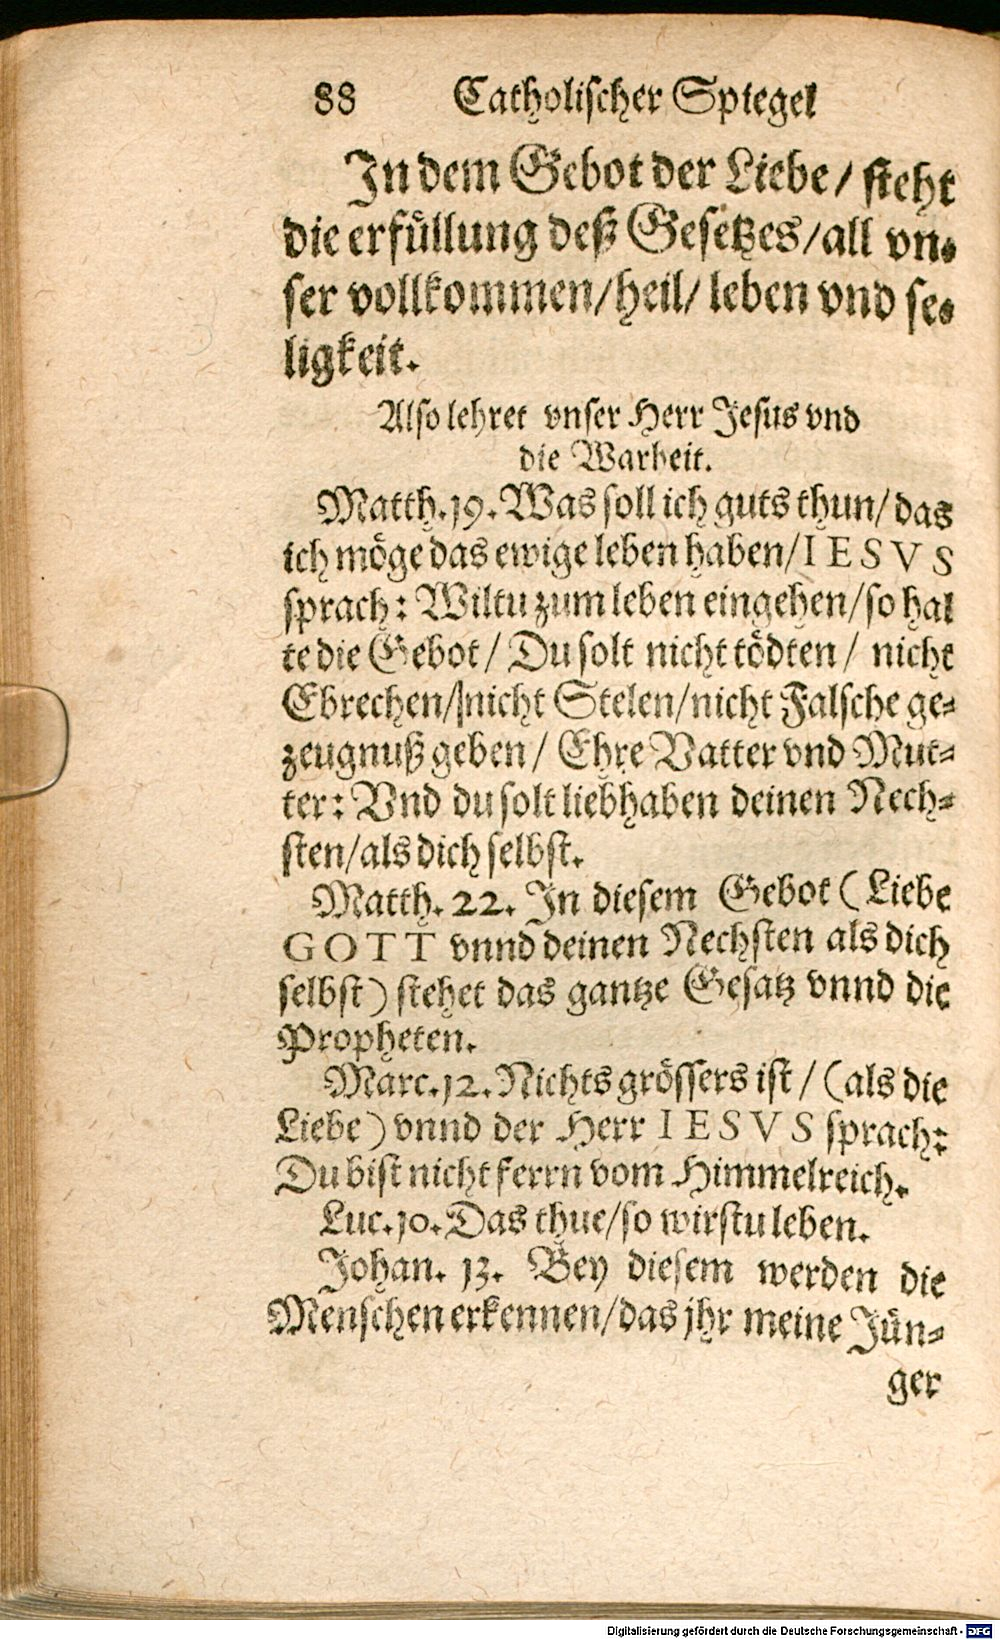 88 Catholischer Spiegel
In dem Gebot der Liebe/ steht
die erfüllung deß Gesetzes/all vn-
ser vollkommen/heil/ leben vnd se-
ligkeit.
Also lehret vnser Herr Jesus vnd
die Warheit.
Matth.19. Was soll ich guts thun/ das
ich möge das ewige leben haben/ IESVS
sprach: Wiltu zum leben eingehen/so hal
te die Gebot/ Du solt nicht tödten/ nicht
Ebrechen/nicht Stelen/nicht Falsche ge-
zeugnuß geben/ Ehre Vatter vnd Mut-
ter: Vnd du solt liebhaben deinen Nech-
sten/als dich selbst.
Matth. 22. In diesem Gebot (Liebe
GOTT vnnd deinen Nechsten als dich
selbst) stehet das gantze Gesatz vnnd die
Propheten.
Marc.12. Nichts grössers ist/ (als die
Liebe) vnnd der Herr IESVS sprach:
Du bist nicht ferrn vom Himmelreich.
Luc.10. Das thue/so wirstu leben.
Johan. 13. Bey diesem werden die
Menschen erkennen/das jhr meine Jün-
ger
Digitalisierung gefördert durch die Deutsche Forschungsgemeinschaft - DFG